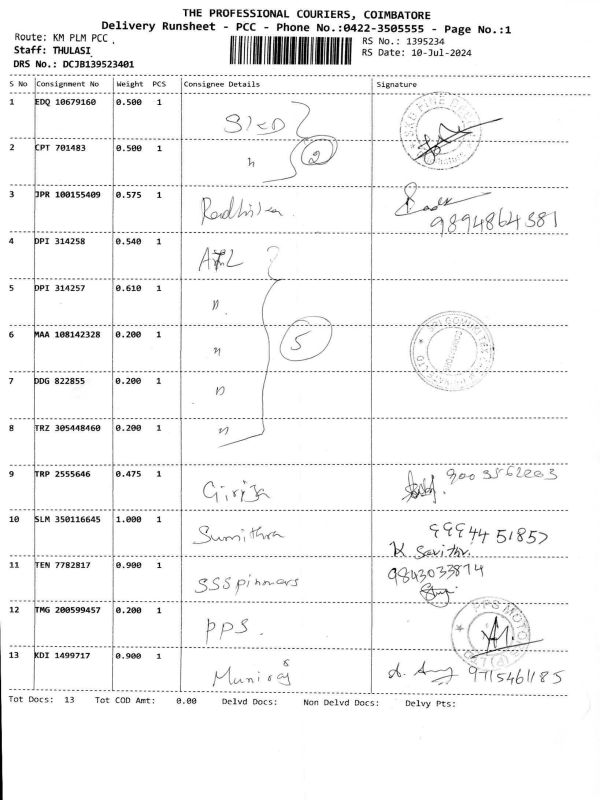 THE PROFESSIONAL COURIERS, COIMBATORE
Delivery Runsheet - PCC - Phone No.:0422-3505555 - Page No.:1
Route: KM PLM PCC .
RS No.: 1395234
Staff: THULASI
RS Date: 10-Jul-2024
DRS No.: DCJB139523401
S No Consignment No Weight PCS Consignee Details Signature
1 EDQ 10679160 0.500 1 SKD
2 CPT 701483 0.500 1 " 2
3 JPR 100155409 0.575 1
9894864381
4 DPI 314258 0.540 1
5 DPI 314257 0.610 1 "
6 MAA 108142328 0.200 1 " 5
7 DDG 822855 0.200 1 "
8 TRZ 305448460 0.200 1 "
9 TRP 2555646 0.475 1 Girija
10 SLM 350116645 1.000 1 Sumithra 99944 51857
K Savithri
11 TEN 7782817 0.900 1 SSSpinners 9843033874
12 TMG 200599457 0.200 1 PPS. PPS MOTO
13 KDI 1499717 0.900 1 Muniraj 9715461185
Tot Docs: 13 Tot COD Amt: 0.00 Delvd Docs: Non Delvd Docs: Delvy Pts: